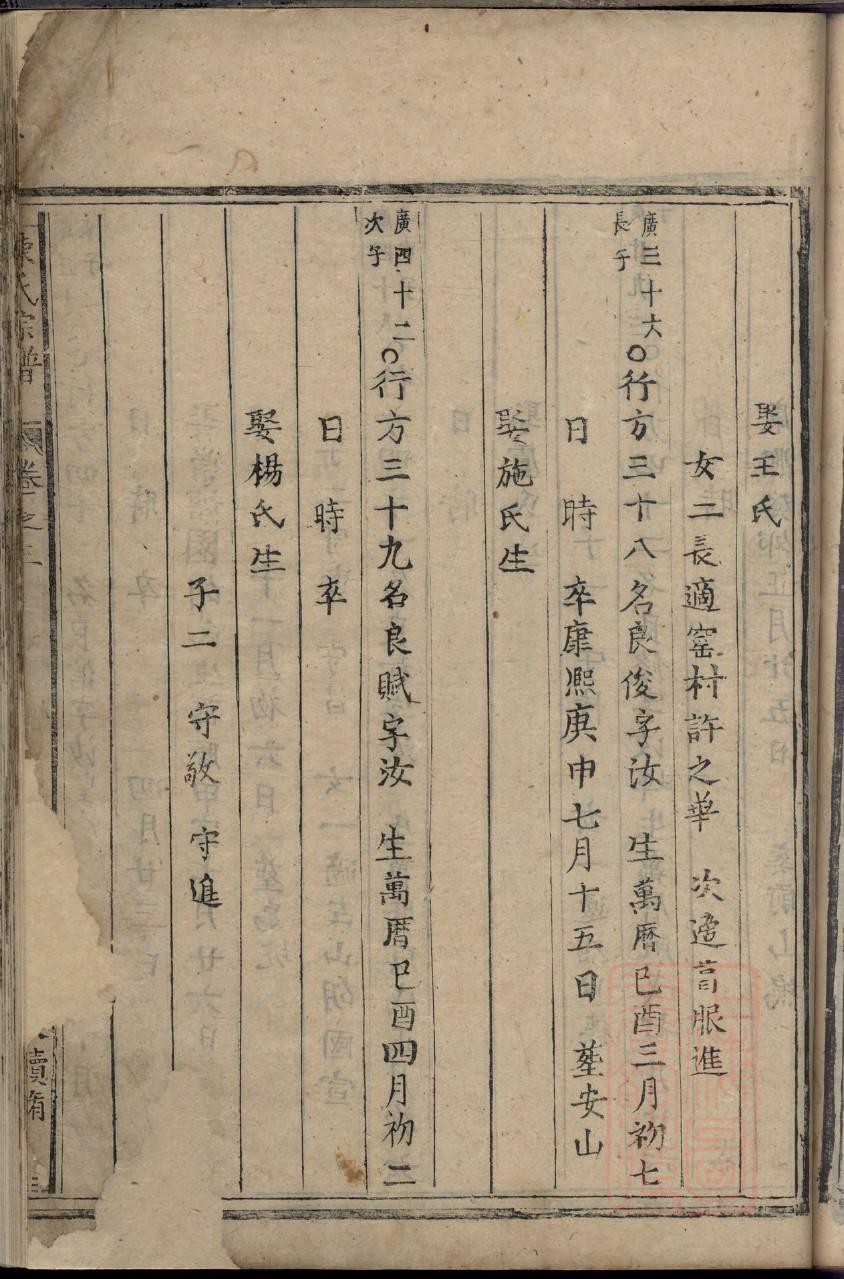 娶王氏
女二長適窑村許之華 次適 服進
廣三十六
長子
○行方三十八名良俊字汝 生萬曆己酉三月初七
日 時 卒康熈庚申七月十五日塟安山
娶施氏生
廣四十二
次子
○行方三十九名良賦字汝 生萬曆己酉四月初二
日 時 卒
娶楊氏生
子二 守敬 守進
氏宗譜 卷之三 續脩